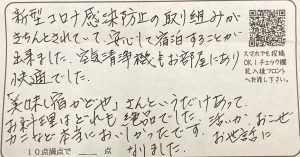 新型コロナ感染防止の取り組みが
きちんとされていて、安心して宿泊することが
出来ました。空気清浄機もお部屋にあり
快適でした。
「美味し宿かどや」さんというだけあって、
お料理はどれも絶品でした。活いか、おこぜ
カニなど本当においしかったです。お世話に
なりました。
10点満点で　点
スマホでも投稿
OK！チェック欄
記入後フロント
へお渡し下さい。